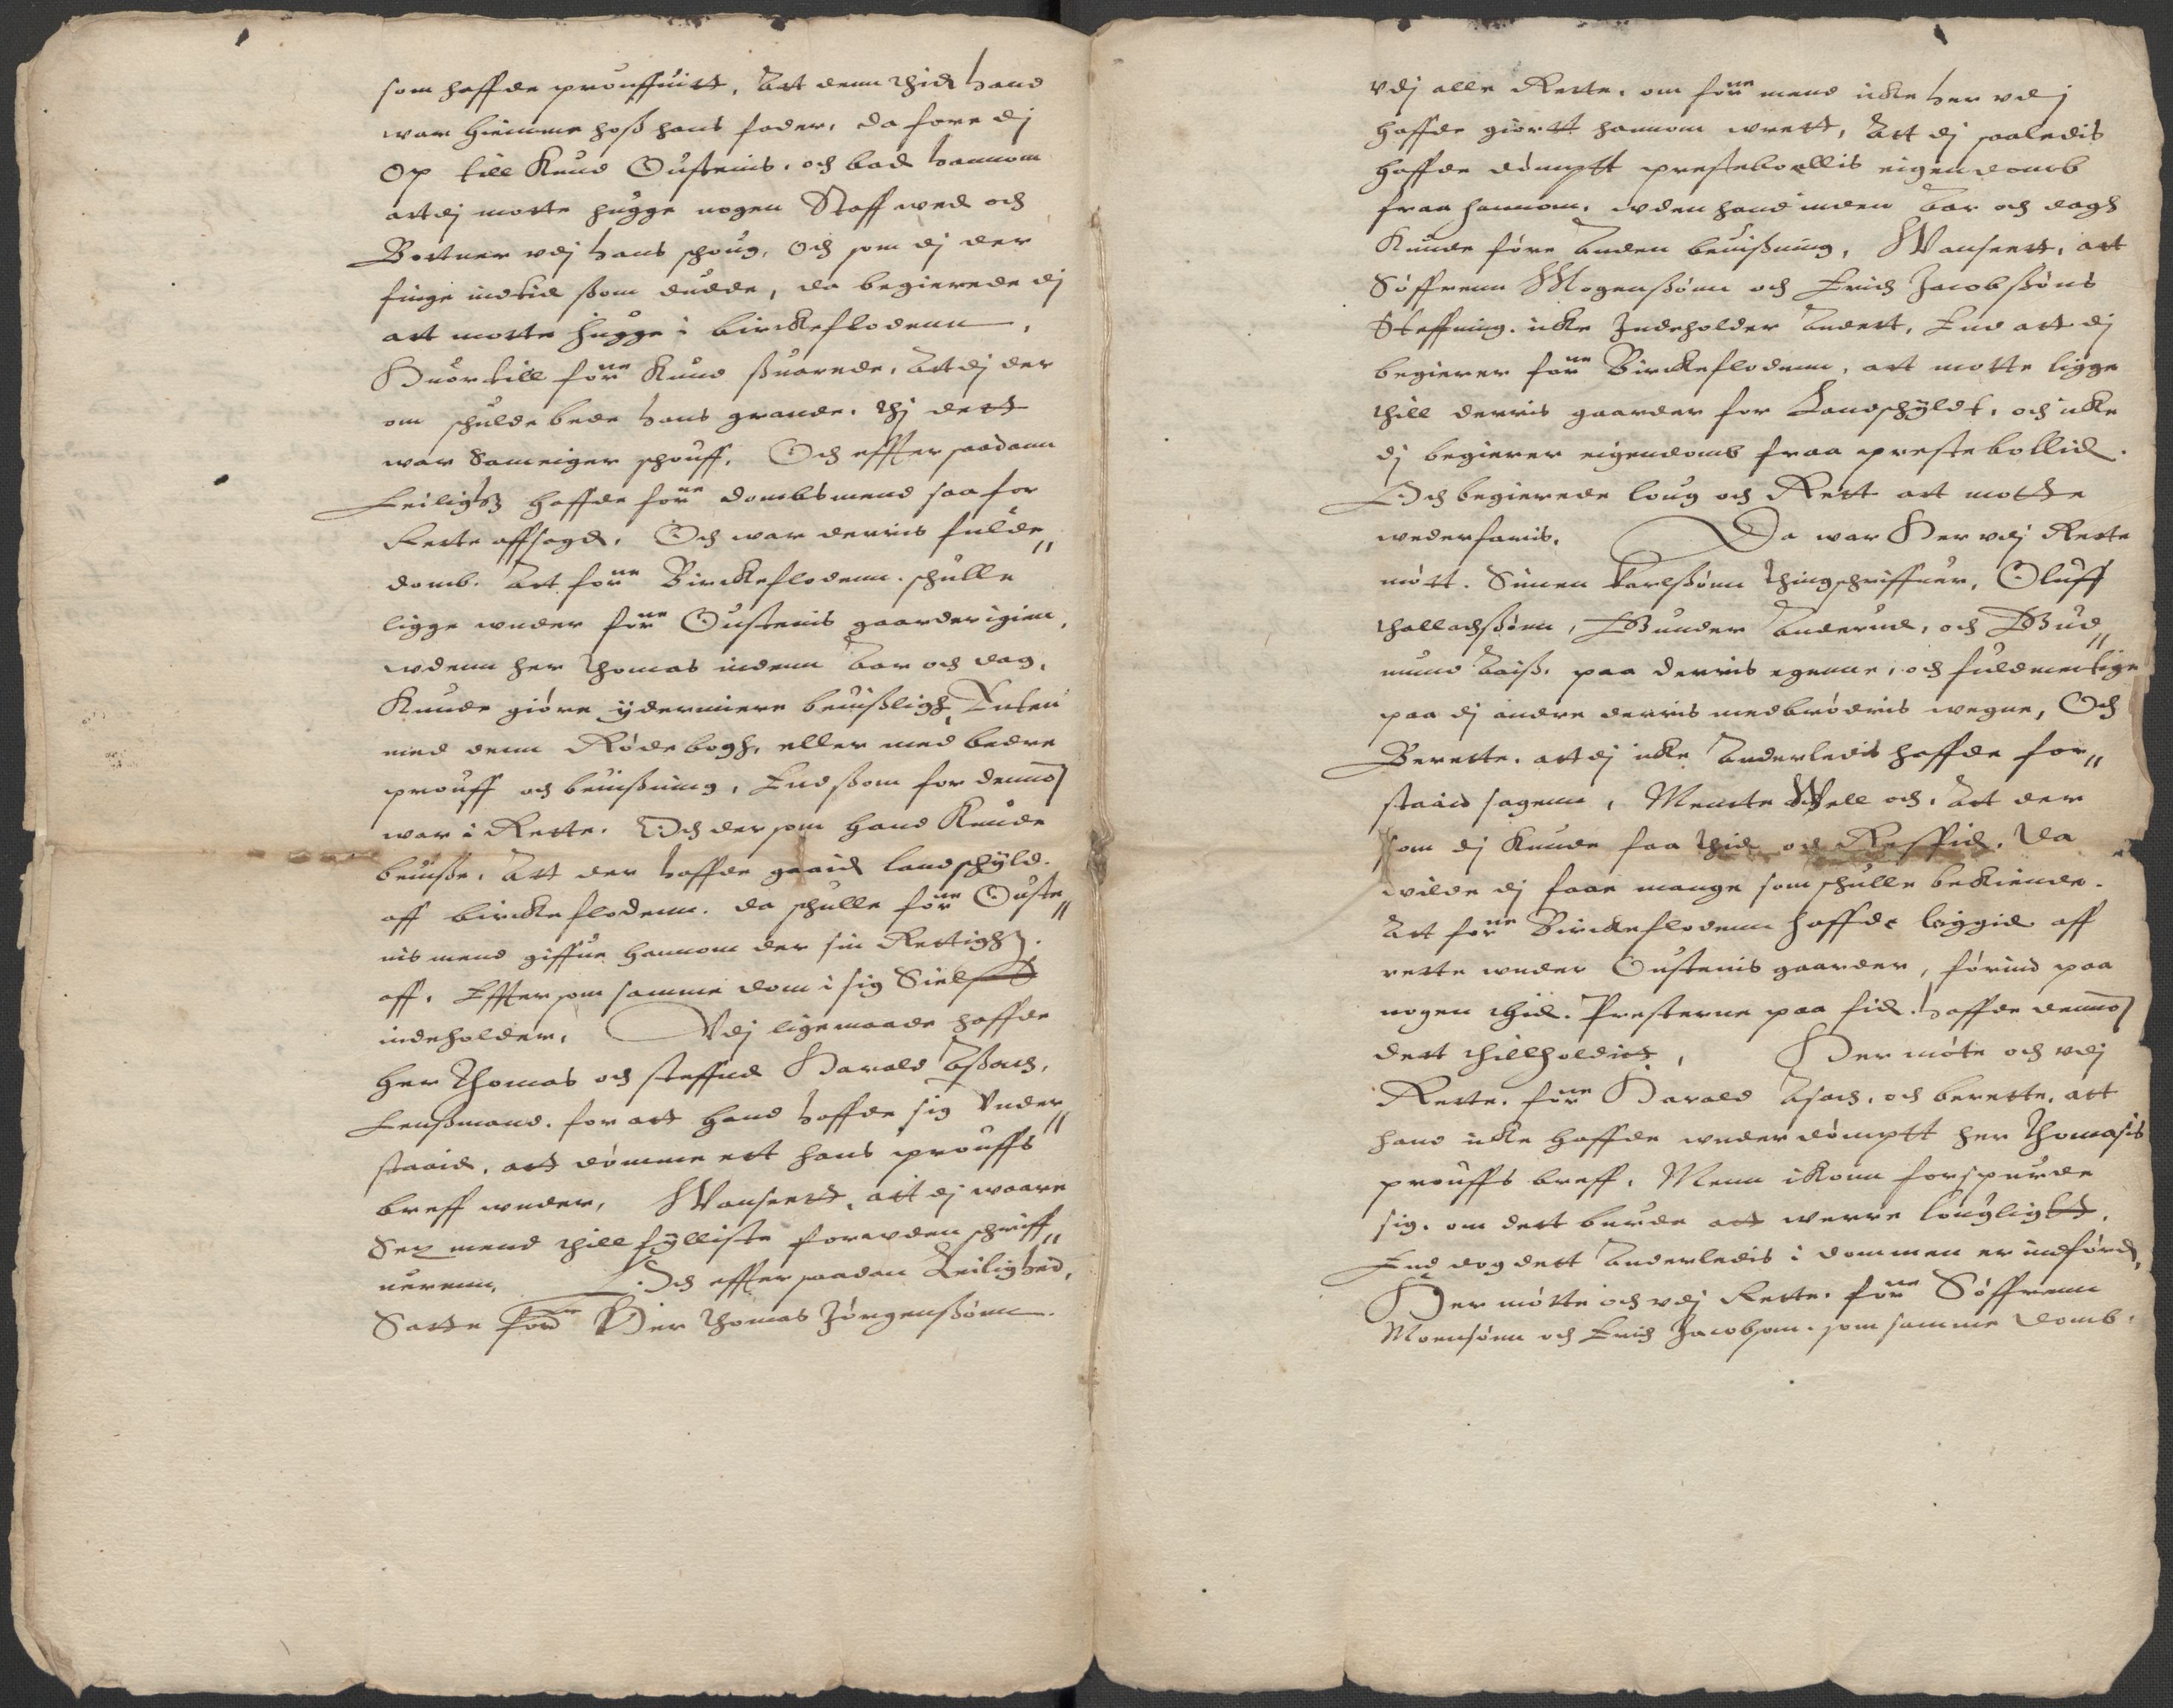 som haffde prouffuitt, Att denn thid hand
war hiemme hoß hans fader, da fore dj
Op till Knud Oustenis, och bad hannom
att dj motte hugge nogen Staffwed och
Bottner vdj hans schoug, Och som dj der
finge indtid ßom dudde, da begierede dj
att motte hugge i birckeflodenn,
Huortill forne Knud suarede, Att dj der
om schulde bede hans grande, thj dett
war Sameiger schouff, Och effter saadann
Leilighed haffde forne dombsmend saa for
Rette affsagd, Och war derris fulde„
domb. Att forne Birckeflodenn schulle
ligge wnder forne Oustenis gaarder igien,
wdenn her Thomas indenn Aar och dag,
Kunde giøre ÿdermiere beuißligh, Enten
med denn Røde bogh, eller med bedre
prouff och beuißning, End som for dennom
war i Rette. Och dersom hand Kunde
beuiße, Att der haffde gaaid landschÿld
aff birckeflodenn. da schulle forne Ouste„
nis mend giffue hannom der sin Rettighed
aff. Effter som samme dom i sig Sielff
indeholder, Vdj ligemaade haffde
her Thomas och steffnd Harald Aßach,
Lenßmand. for att hand haffde sig Vnder„
staaid, att dømme ett hans prouffs
breff wnder, Wanseett, att dj waare
Sex mend thill fÿlliste foruden schriff„
uerenn, Och effter saadan Leilighed,
Satte forne Her Thomas Jørgenßønn

vdj alle Rette, om forne mend icke her vdj
haffde giortt hannom wrett, Att dj saaledis
haffde dømptt prestebollis eigendomb
fraa hannom, wden hand inden Aar och dagh
Kunde føre Anden beuißning, Wanseett, att
Søffrenn Mogenßønn och Erich Jacobßøns
Steffning icke Indeholder Andett, End att dj
begierer forne Birckeflodenn, att motte ligge
thill derris gaarder for Landschÿldt, och icke
dj begierer eigendomb fraa prestebollid.
Och begierede loug och Rett att motte
wederfaris. Da war Her vdj Rette
møtt. Simen Karlßønn thingschriffuer, Oluff
thollachßønn, Gunder Anderud, och Gud„
mund Aaiß, paa derris egenne, och fuldmectige
paa dj andre derris medbrødris wegne, Och
Berette, att dj icke Anderledis haffde for„
staaid sagenn, Mente Well och, Att der
som dj Kunde faa thid och Reffid, da
wilde dj faae mange som schulle bekiende.
Att forne Birckeflodenn haffde liggid aff
rette wnder Oustenis gaarder, førind paa
nogen thid. Presterne paa fid haffde dennom
dett thillholdiet, Her møte och vdj
Rette. forne Harald Asach, och berette, att
hand icke haffde wnderdømptt her Thomasis
prouffs breff, Menn ikonn forspurde
sig, om dett burde att werre louglight,
End dog dett Anderledis i dommen er indførd,
Her møtte och vdj Rette. forne Søffrenn
Moensønn och Erich Jacobsøn. som samme domb.